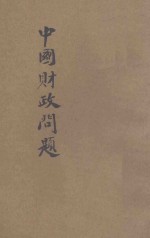 中國財政問題